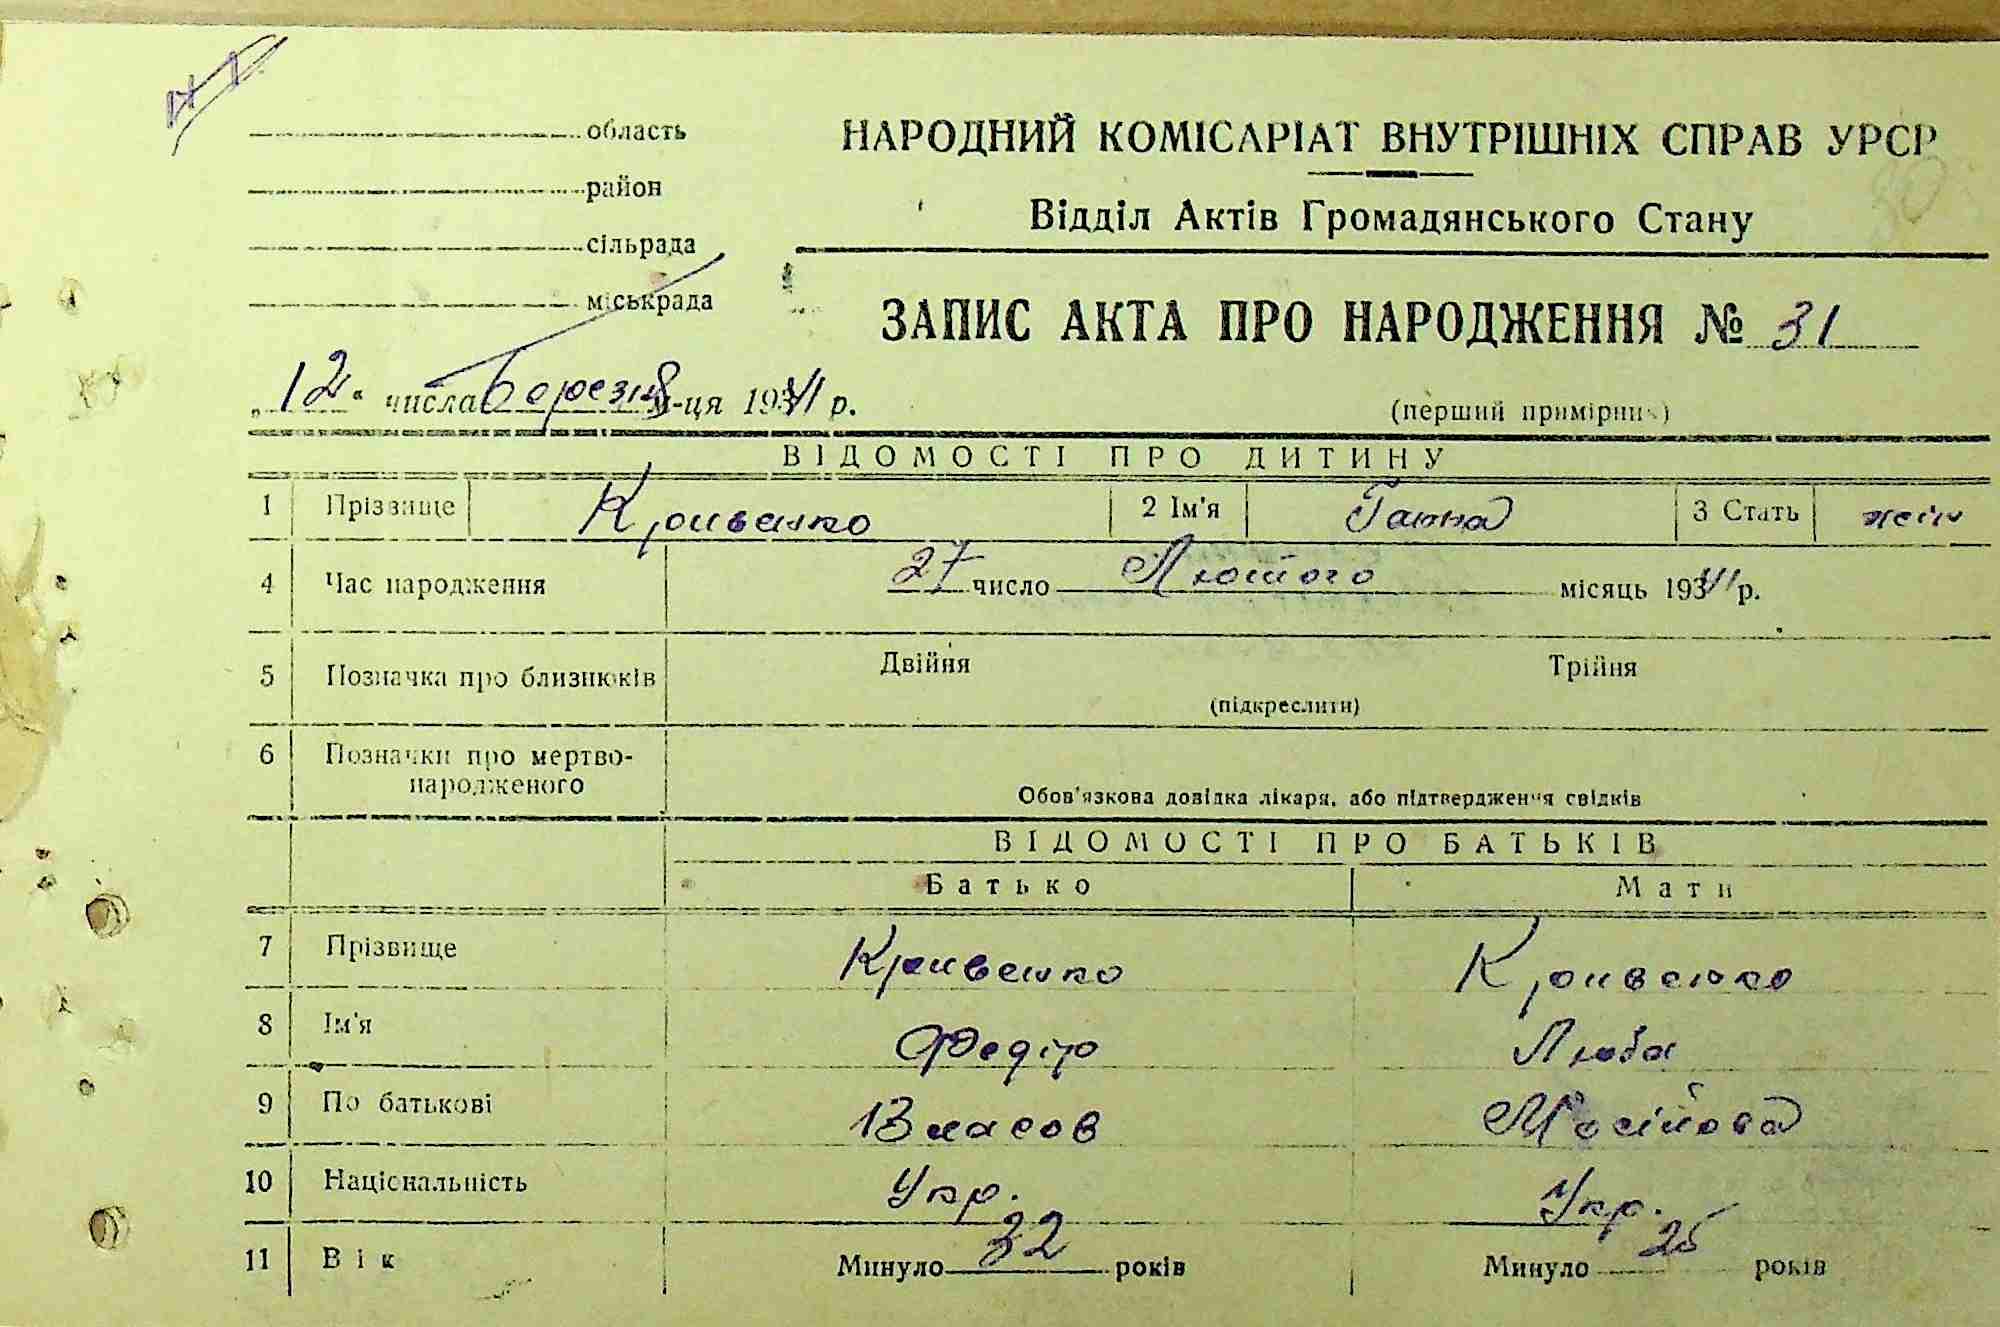 область
район
сільрада
міськрада
НАРОДНИЙ КОМІСАРІАТ ВНУТРІШНІХ СПРАВ УРСР
Відділ Актів Громадянського Стану
ЗАПИС АКТА ПРО НАРОДЖЕННЯ № 31
„12“ числа Березня м-ця 1941 р.
(перший примірник)
ВІДОМОСТІ ПРО ДИТИНУ
1 Прізвище Кривенко 2 Ім'я Ганна 3 Стать жін
4 Час народження 27 число Лютого місяць 1941 р.
5 Позначка про близнюків Двійня Трійня
(підкреслити)
6 Позначки про мертво-
народженого
Обов'язкова довідка лікаря, або підтвердження свідків
ВІДОМОСТІ ПРО БАТЬКІВ
Батько Мати
7 Прізвище Кривенко Кривенко
8 Ім'я Федір Люба
9 По батькові Власов Мосійова
10 Національність Укр. Укр.
11 Вік Минуло 32 років Минуло 25 років